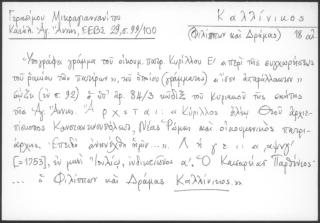 Γερασίμου Μικραγιαννανίτου
Καλλίνικος
Κατάλ. Ἁγ. Ἄννης, ΕΕΒΣ 29, σ. 99/100
(Φιλίππων καὶ Δράμας) 18 αἰ.
«Ὑπόγραφο γράμμα τοῦ οἰκουμ. πατρ. Κυρίλλου Ε' περὶ τῆς συγχωρήσεως
τοῦ βασιν τῶν πατέρων», τοῦ ὁποίου (γράμματος) "ἴσον ἀπαράλλακτον"
σῴζεται ὑπ' ἀρ. 84/3 κώδιξ τοῦ Κυριακοῦ τῆς σκήτης
τῆς Ἁγ. Ἄννης. Ἄρχεται: «Κύριλλος ἐλέῳ Θεοῦ ἀρχιε-
πίσκοπος Κωνσταντινουπόλεως, Νέας Ῥώμης καὶ οἰκουμενικὸς πατρι-
άρχης. Ἐπειδὴ ἀνηνέχθη ἡμῖν...». Λήγει: αψνγ'
[=1753], ἐν μηνὶ Ἰουλίῳ, ἰνδικτιῶνος α'. Ὁ Καισαρείας Παρθένιος
... ὁ Φιλίππων καὶ Δράμας Καλλίνικος»